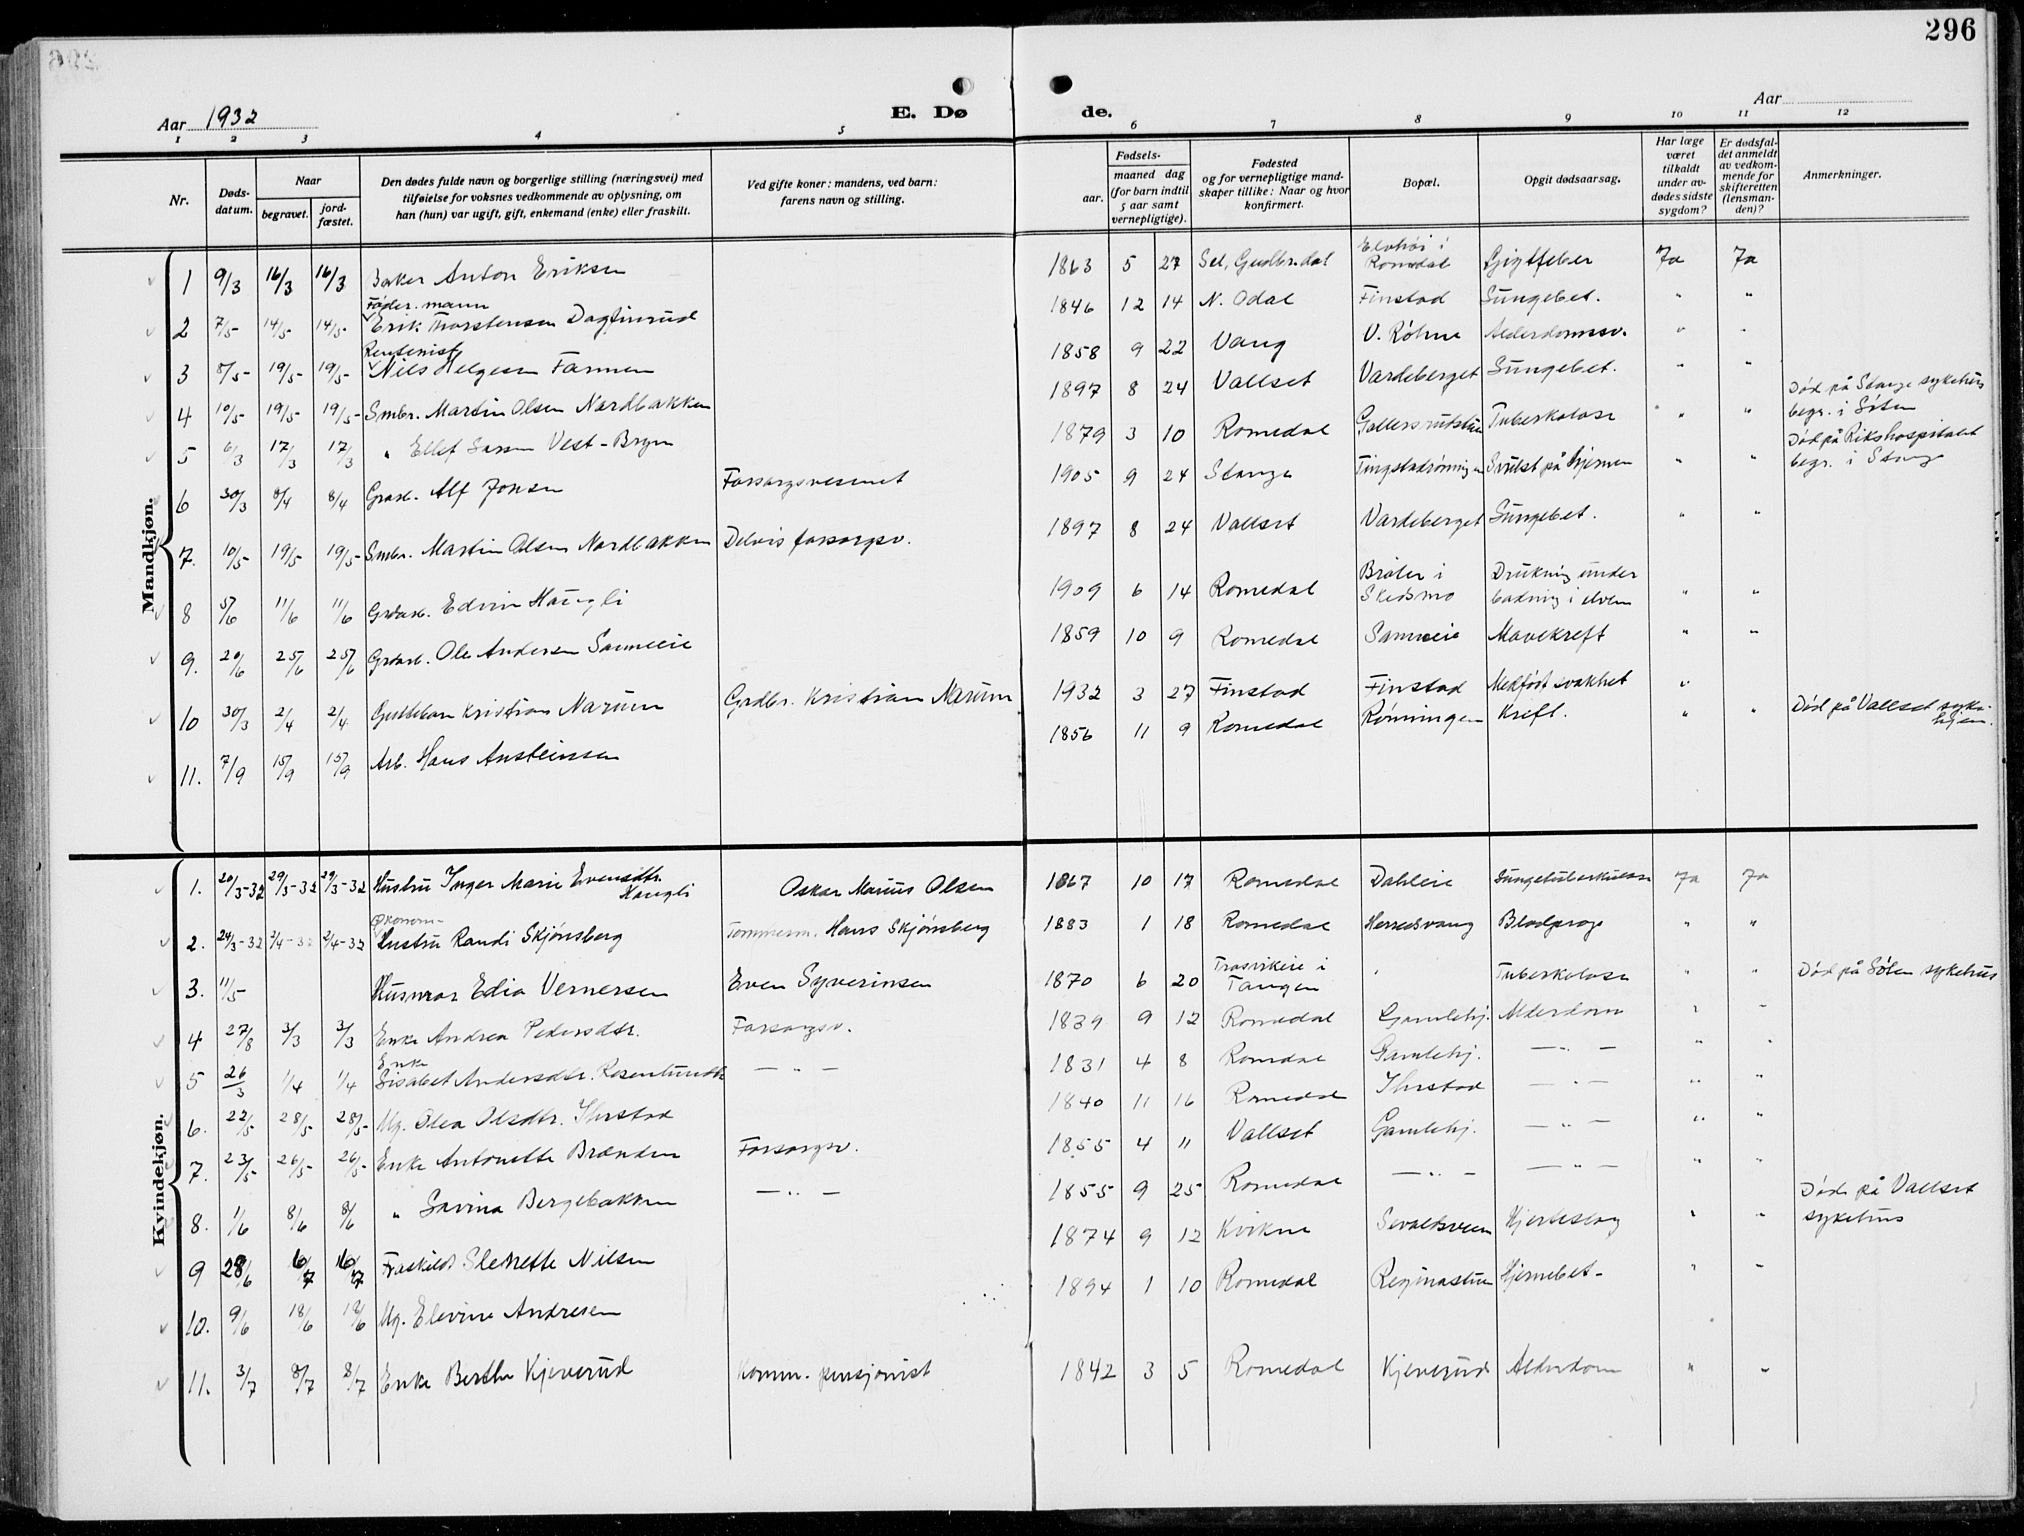 296
Aar 1932
E. Dø
de.
Aar
1 2 3 4 5 6 7 8 9 10 11 12
Nr.
Døds-
datum.
Naar
begravet.
jord-
fæstet.
Den dødes fulde navn og borgerlige stilling (næringsvei) med
tilføielse for voksnes vedkommende av oplysning, om
han (hun) var ugift, gift, enkemand (enke) eller fraskilt.
Ved gifte koner: mandens, ved barn:
farens navn og stilling.
Fødsels-
aar.
maaned dag
(for barn indtil
5 aar samt
vernepligtige).
Fødested
og for vernepligtige mand-
skaper tillike: Naar og hvor
konfirmert.
Bopæl.
Opgit dødsaarsag.
Har læge
været
tilkaldt
under av-
dødes sidste
sygdom?
Er dødsfal-
det anmeldt
av vedkom-
mende for
skifteretten
(lensman-
den)?
Anmerkninger.
Mandkjøn.
1 9/3 16/3 16/3 Baker Anton Eriksen 1863 5 27 Sel, Gudbr.dal Elvhøi i Romedal Gigtfeber Ja Ja
2 7/5 14/5 14/5 Føder.mann Erik Thorstensen Dagfinrud 1846 12 14 N. Odal Finstad Lungebet. " "
3 8/5 19/5 19/5 Rentenist Nils Helgesen Farmen 1858 9 22 Vang V. Røhne Alderdomssv. " "
4 10/5 19/5 19/5 Smbr. Martin Olsen Nordbakken 1897 8 24 Vallset Vardeberget Lungebet. " " Død på Stange sykehus
begr. i Sôten
5 6/3 17/3 17/3 " Ellef Larsen Vest-Bryn 1879 3 10 Romedal Tuberkulose " " Død på Rikshospitalet
begr. i Stange
6 30/3 8/4 8/4 Alf Jonsen Forsorgsvesenet 1905 9 24 Stange Svulst på hjernen " "
7. 10/5 19/5 19/5 Smbr. Martin Olsen Nordbakken Delvis forsorgsv. 1897 8 24 Vallset Vardeberget Lungebet. " "
8 5/6 11/6 11/6 Edvin Haugli 1909 6 14 Romedal Bråten i Skedsmo Drukning under
badning i elven " "
9. 20/6 25/6 25/6 Ole Andersen Sanneeie 1859 10 9 Romedal Sanneeie Mavekreft " "
10 30/3 2/4 2/4 Guttebarn Kristian Narum Grdbr. Kristian Narum 1932 3 27 Finstad Finstad Medfødt svakhet "
11. 7/9 15/9 15/9 Arb. Hans Austeinsen 1856 11 9 Romedal Rønningen Kreft. " " Død på Vallset syke-
hjem.
Kvindekjøn.
1. 20/3-32 29/3-32 29/3-32 Hustru Inger Marie Evensdtr.
Haugli Oskar Marius Olsen 1867 10 17 Romedal Dahleie Lungetuberkulose Ja Ja
2. 24/3-32 2/4-32 2/4-32 Økonom- Hustru Randi Skjønsberg Tømmerm. Hans Skjønsberg 1883 1 18 Romedal Herredsvang Blodprop " "
3. 11/5 Husmor Edia Vernersen Even Syverinsen 1870 6 20 Trosvikeie i
Tangen Tuberkulose " " Død på Sôten sykehus
4 27/8 3/3 3/3 Enke Andrea Pedersdtr. Forsorgsv. 1839 9 12 Romedal Gamlehj. Alderdom " "
5 26/3 1/4 1/4 Enke
Lisabet Andersdtr. Rosenlundeie — " — 1831 4 8 Romedal Gamlehj. — " — " "
6. 22/5 28/5 28/5 Ug. Olea Olsdtr. Ihrstad 1840 11 16 Romedal Ihrstad — " — " "
7. 23/5 26/5 26/5 Enke Antonette Brænden Forsorgsv. 1855 4 11 Vallset Gamlehj. — " — " "
8. 1/6 8/6 8/6 " Lavina Bergebakken — " — 1855 9 25 Romedal — " — — " — " "
9 28/6 16/7 Fraskildt Nilsen 1874 9 12 Kvikne Hjerteslag " " Død på Vallset
sykehus
10. 9/6 18/6 18/6 Ug. Elevine Andresen 1894 1 10 Romedal Reginastuen Hjernebet- " "
11. 3/7 8/7 8/7 Enke Berthe Kjeverud Komm. pensjonist 1842 3 5 Romedal Kjeverud Alderdom " "